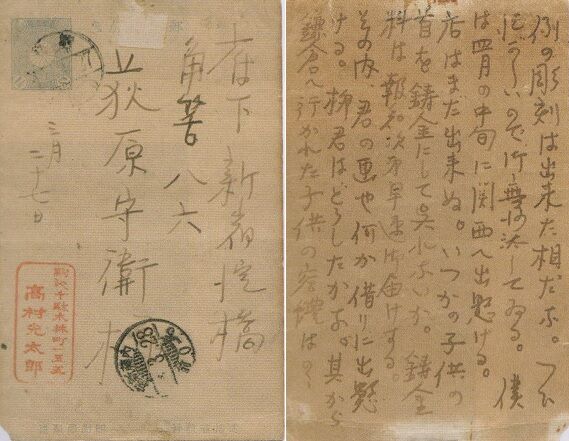 府下新宿淀橋
角筈八六
荻原守衛様
三月
二十七日
駒込千駄木林町一五五
高村光太郎
3.28
例の彫刻は出来た相だな。
ので御無沙汰してゐる。僕
は四月の中旬に関西へ出懸ける。
店はまだ出来ぬ。いつかの子供の
首を鋳金にして呉れないか。鋳金
料は報知次第早速御届けする。
その内、君の画也何か借りに出懸
ける。柳君はどうしたかなあ。其から
鎌倉へ行かれた子供の